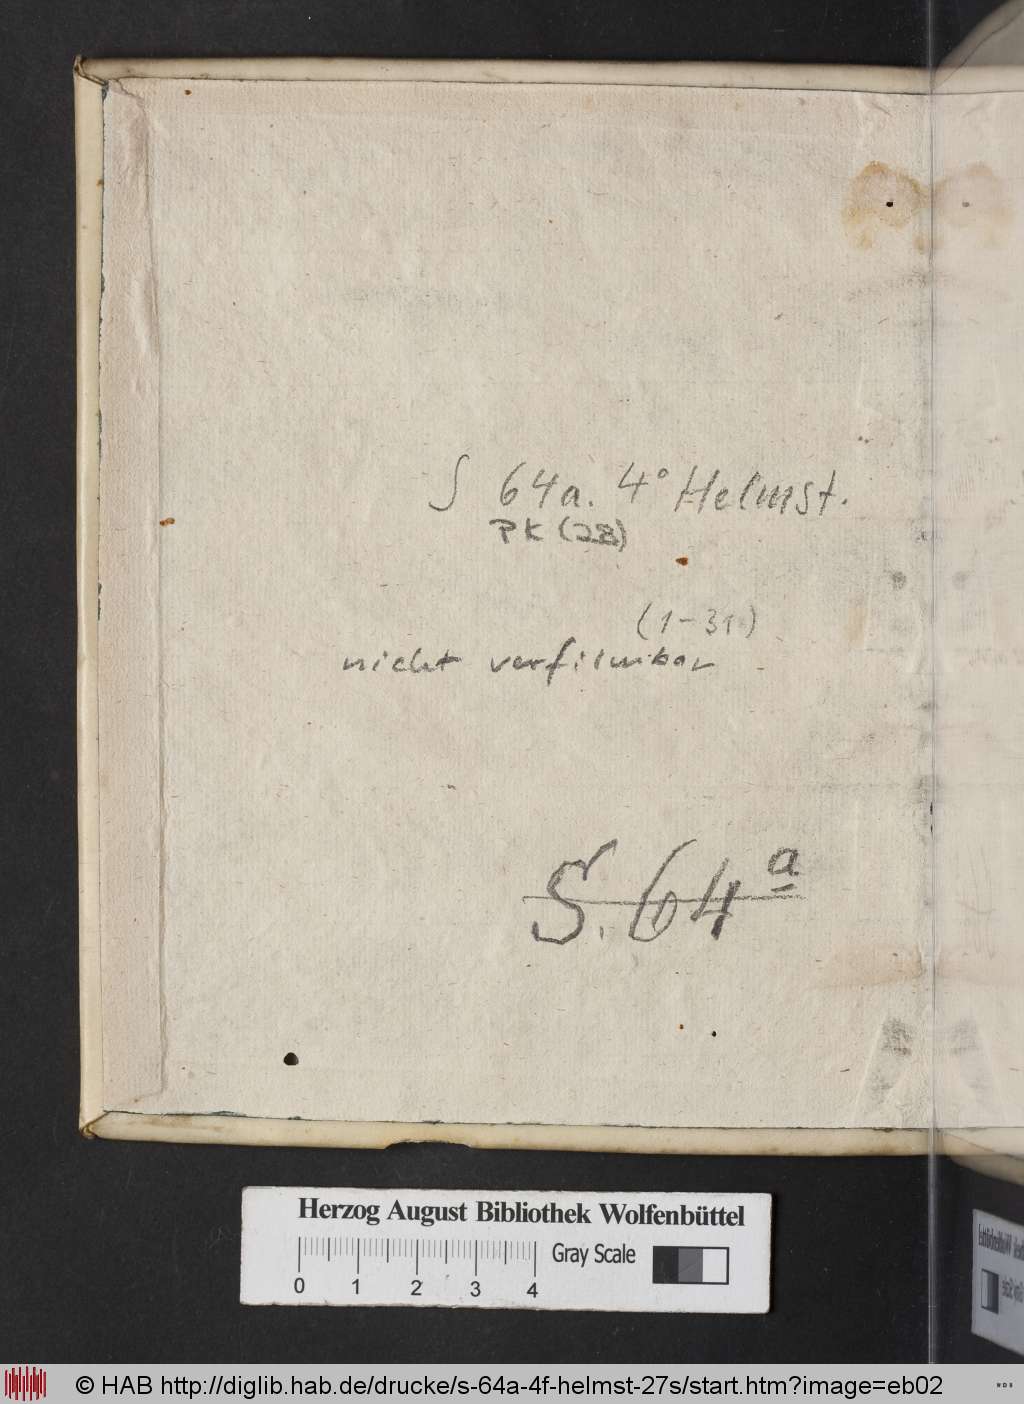 S 64a. 4° Helmst.
PK (28)
(1-31)
nicht verfilmbar
S. 64a
Herzog August Bibliothek Wolfenbüttel
Gray Scale
0 1 2 3 4
© HAB http://diglib.hab.de/drucke/s-64a-4f-helmst-27s/start.htm?image=eb02